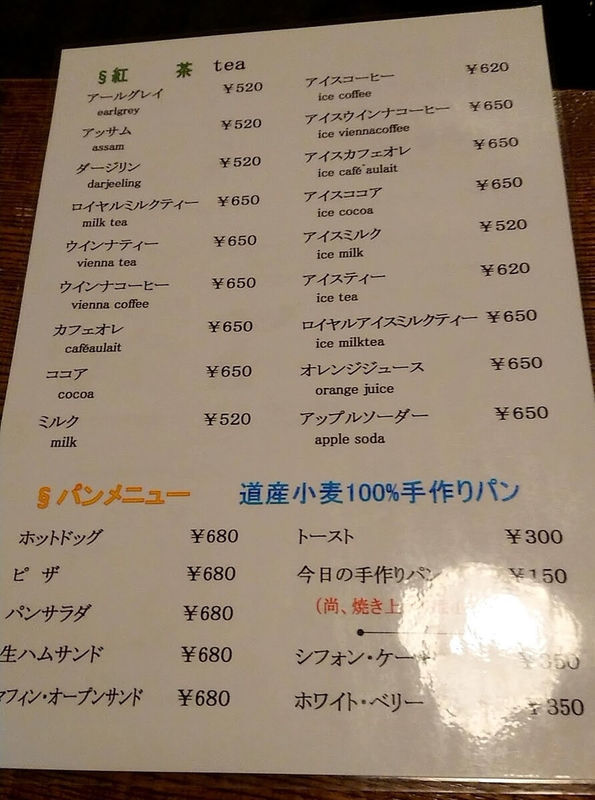 §紅 茶 tea
アールグレイ ￥520
earlgrey
アッサム ￥520
assam
ダージリン ￥520
darjeeling
ロイヤルミルクティー ￥650
milk tea
ウインナティー ￥650
vienna tea
ウインナコーヒー ￥650
vienna coffee
カフェオレ ￥650
caféaulait
ココア ￥650
cocoa
ミルク ￥520
milk
アイスコーヒー ￥620
ice coffee
アイスウインナコーヒー ￥650
ice viennacoffee
アイスカフェオレ ￥650
ice café aulait
アイスココア ￥650
ice cocoa
アイスミルク ￥520
ice milk
アイスティー ￥620
ice tea
ロイヤルアイスミルクティー ￥650
ice milktea
オレンジジュース ￥650
orange juice
アップルソーダー ￥650
apple soda
§パンメニュー 道産小麦100%手作りパン
ホットドッグ ￥680
ピ ザ ￥680
パンサラダ ￥680
生ハムサンド ￥680
マフィン・オープンサンド ￥680
トースト ￥300
今日の手作りパン ￥150
(尚、焼き上
シフォン・ケーキ ￥350
ホワイト・ベリー ￥350